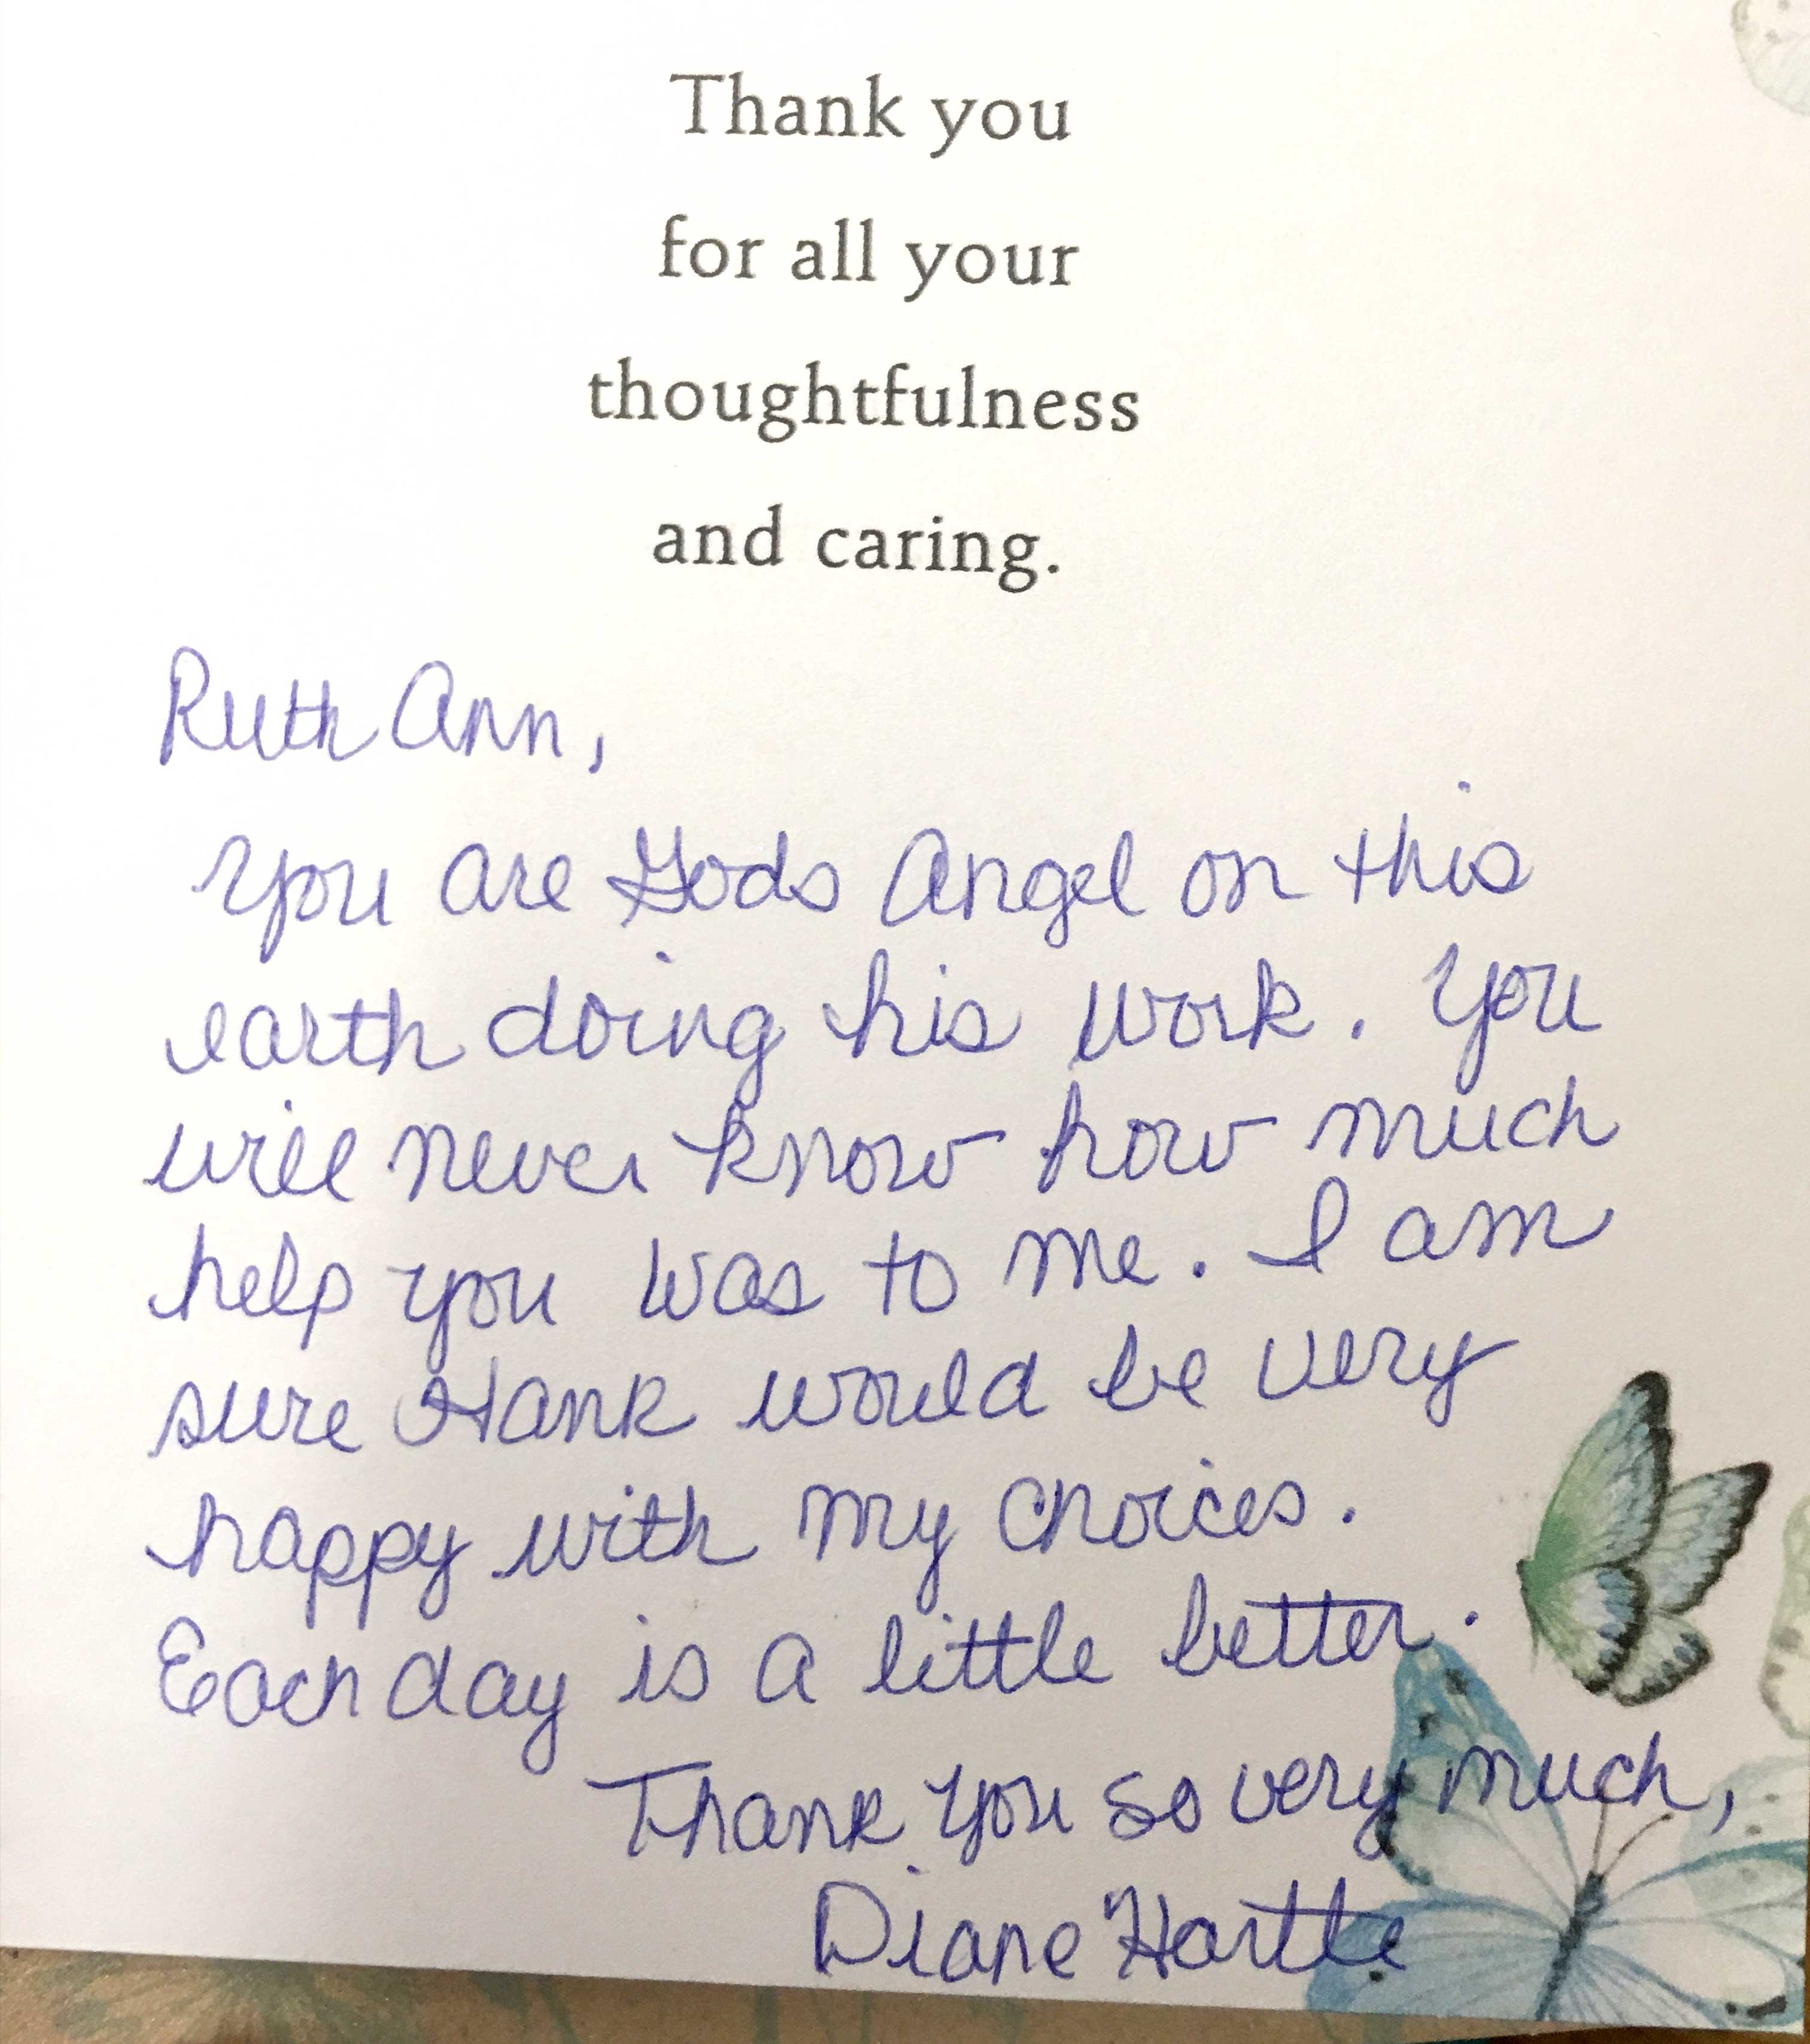 Thank you
for all your
thoughtfulness
and caring.
Ruth Ann,
You are Gods Angel on this
earth doing his work. You
will never know how much
help you was to me. I am
sure Hank would be very
happy with my choices.
Each day is a little better.
Thank you so very much,
Diane Hartle